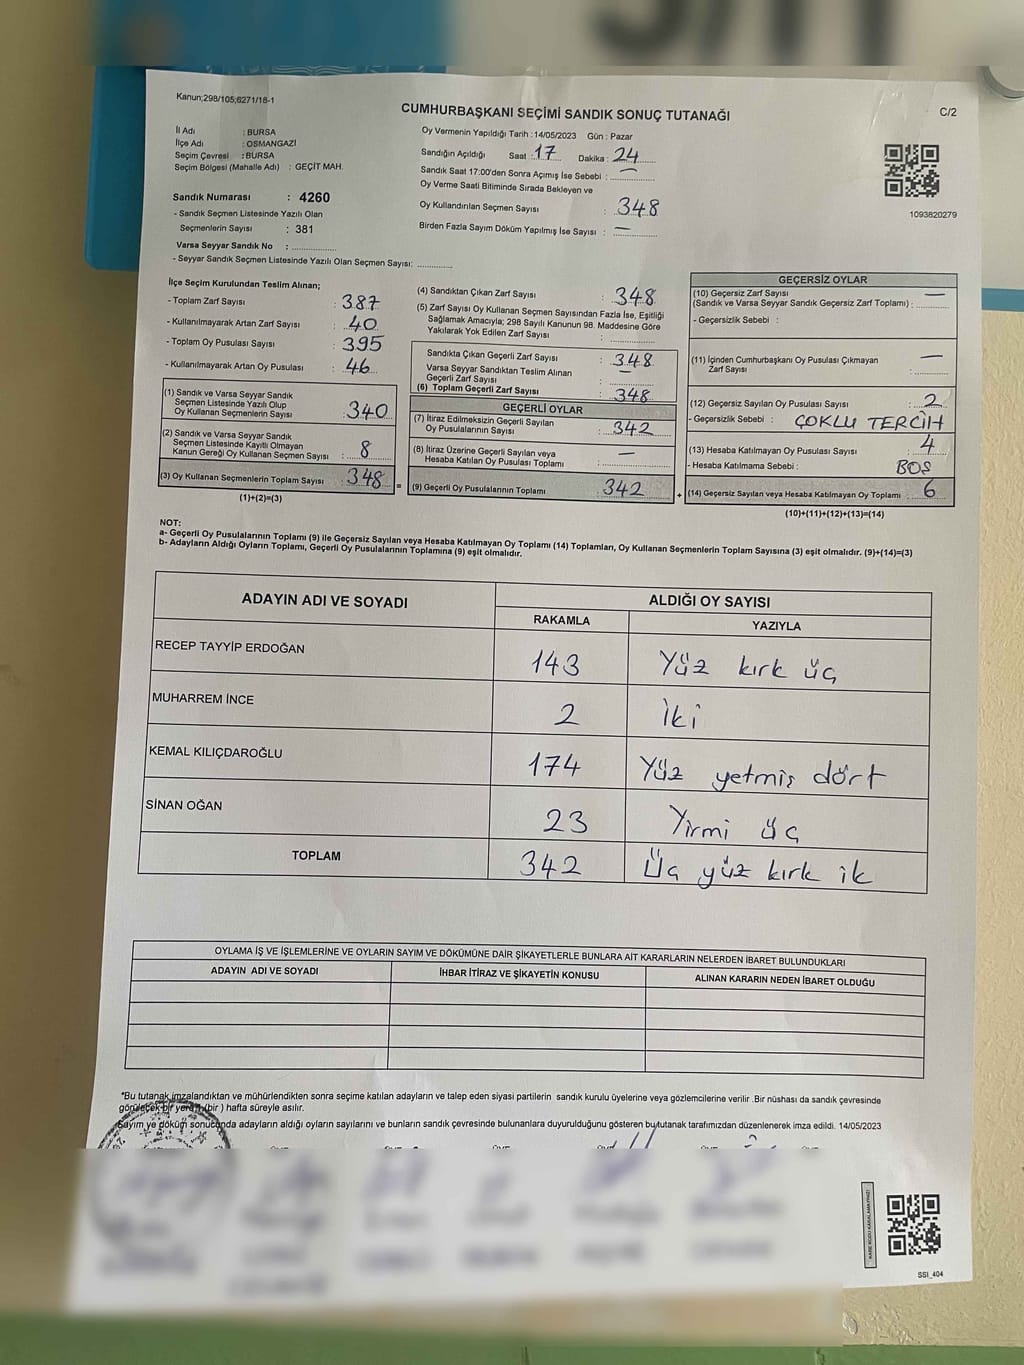 Kanun;298/105;6271/18-1
CUMHURBAŞKANI SEÇİMİ SANDIK SONUÇ TUTANAĞI
C/2
İl Adı : BURSA
İlçe Adı : OSMANGAZİ
Seçim Çevresi : BURSA
Seçim Bölgesi (Mahalle Adı) : GEÇİT MAH.
Sandık Numarası : 4260
- Sandık Seçmen Listesinde Yazılı Olan
Seçmenlerin Sayısı : 381
Varsa Seyyar Sandık No : ..............
- Seyyar Sandık Seçmen Listesinde Yazılı Olan Seçmen Sayısı: ............
Oy Vermenin Yapıldığı Tarih :14/05/2023 Gün : Pazar
Sandığın Açıldığı Saat : 17 Dakika : 24
Sandık Saat 17:00'den Sonra Açımış İse Sebebi : —
Oy Verme Saati Bitiminde Sırada Bekleyen ve
Oy Kullandırılan Seçmen Sayısı : 348
Birden Fazla Sayım Döküm Yapılmış İse Sayısı : —
1093820279
İlçe Seçim Kurulundan Teslim Alınan;
- Toplam Zarf Sayısı : 387
- Kullanılmayarak Artan Zarf Sayısı : 40
- Toplam Oy Pusulası Sayısı : 395
- Kullanılmayarak Artan Oy Pusulası : 46
(1) Sandık ve Varsa Seyyar Sandık
Seçmen Listesinde Yazılı Olup
Oy Kullanan Seçmenlerin Sayısı : 340
(2) Sandık ve Varsa Seyyar Sandık
Seçmen Listesinde Kayıtlı Olmayan
Kanun Gereği Oy Kullanan Seçmen Sayısı : 8
(3) Oy Kullanan Seçmenlerin Toplam Sayısı : 348
(1)+(2)=(3)
=
(4) Sandıktan Çıkan Zarf Sayısı : 348
(5) Zarf Sayısı Oy Kullanan Seçmen Sayısından Fazla İse, Eşitliği
Sağlamak Amacıyla; 298 Sayılı Kanunun 98. Maddesine Göre
Yakılarak Yok Edilen Zarf Sayısı : ..............
Sandıkta Çıkan Geçerli Zarf Sayısı : 348
Varsa Seyyar Sandıktan Teslim Alınan —
Geçerli Zarf Sayısı : ..............
(6) Toplam Geçerli Zarf Sayısı : 348
GEÇERLİ OYLAR
(7) İtiraz Edilmeksizin Geçerli Sayılan
Oy Pusulalarının Sayısı : 342
(8) İtiraz Üzerine Geçerli Sayılan veya —
Hesaba Katılan Oy Pusulası Toplamı : ..............
(9) Geçerli Oy Pusulalarının Toplamı 342
+
GEÇERSİZ OYLAR
(10) Geçersiz Zarf Sayısı —
(Sandık ve Varsa Seyyar Sandık Geçersiz Zarf Toplamı) : .........
- Geçersizlik Sebebi :
(11) İçinden Cumhurbaşkanı Oy Pusulası Çıkmayan —
Zarf Sayısı : .........
(12) Geçersiz Sayılan Oy Pusulası Sayısı : 2
- Geçersizlik Sebebi : ÇOKLU TERCİH
(13) Hesaba Katılmayan Oy Pusulası Sayısı : 4
- Hesaba Katılmama Sebebi : BOŞ
(14) Geçersiz Sayılan veya Hesaba Katılmayan Oy Toplamı : 6
(10)+(11)+(12)+(13)=(14)
NOT:
a- Geçerli Oy Pusulalarının Toplamı (9) ile Geçersiz Sayılan veya Hesaba Katılmayan Oy Toplamı (14) Toplamları, Oy Kullanan Seçmenlerin Toplam Sayısına (3) eşit olmalıdır. (9)+(14)=(3)
b- Adayların Aldığı Oyların Toplamı, Geçerli Oy Pusulalarının Toplamına (9) eşit olmalıdır.
ADAYIN ADI VE SOYADI ALDIĞI OY SAYISI
RAKAMLA YAZIYLA
RECEP TAYYİP ERDOĞAN 143 Yüz kırk üç
MUHARREM İNCE 2 İki
KEMAL KILIÇDAROĞLU 174 Yüz yetmiş dört
SİNAN OĞAN 23 Yirmi üç
TOPLAM 342 Üç yüz kırk ik
OYLAMA İŞ VE İŞLEMLERİNE VE OYLARIN SAYIM VE DÖKÜMÜNE DAİR ŞİKAYETLERLE BUNLARA AİT KARARLARIN NELERDEN İBARET BULUNDUKLARI
ADAYIN ADI VE SOYADI İHBAR İTİRAZ VE ŞİKAYETİN KONUSU ALINAN KARARIN NEDEN İBARET OLDUĞU
*Bu tutanak imzalandıktan ve mühürlendikten sonra seçime katılan adayların ve talep eden siyasi partilerin sandık kurulu üyelerine veya gözlemcilerine verilir .Bir nüshası da sandık çevresinde
görülecek bir yere 1 (bir ) hafta süreyle asılır.
Sayım ve döküm sonucunda adayların aldığı oyların sayılarını ve bunların sandık çevresinde bulunanlara duyurulduğunu gösteren bu tutanak tarafımızdan düzenlenerek imza edildi. 14/05/2023
SSI_404